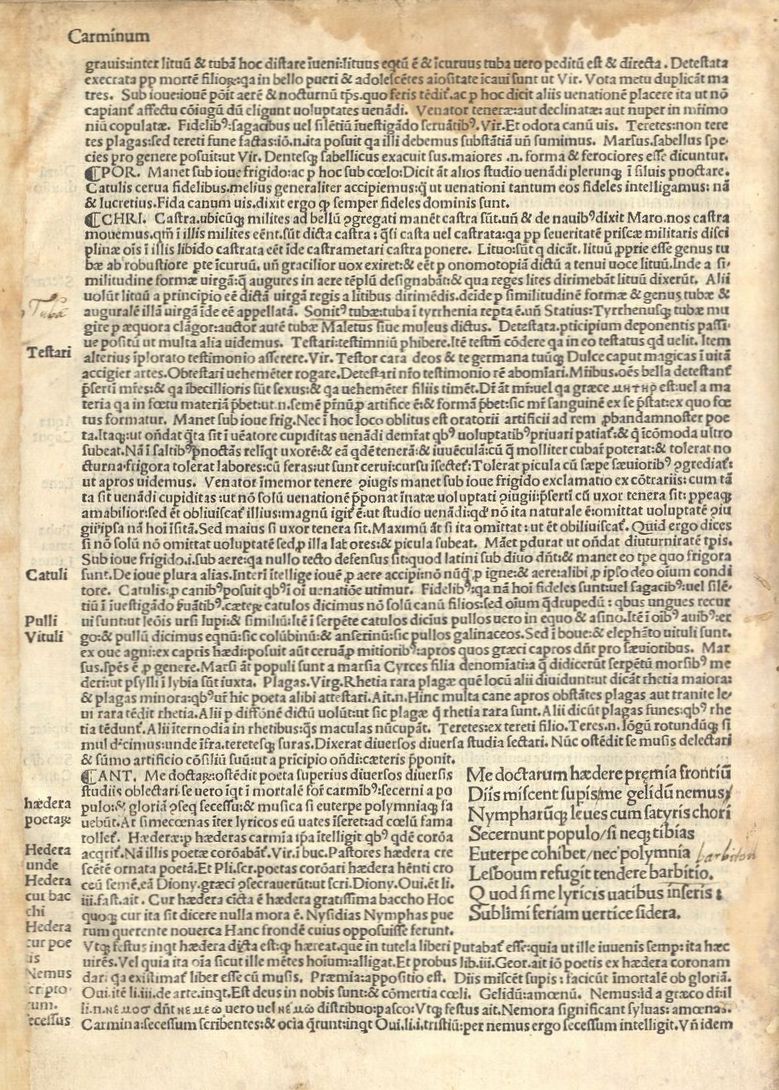 Carminum
grauis:inter lituũ & tubã hoc distare ĩueni:lituus eqtũ ẽ & ĩcuruus tuba uero peditũ est & directa. Detestata
execrata pp mortẽ filioꝝ:qa in bello pueri & adolescẽtes aiositate icaui sunt ut Vir. Vota metu duplicãt ma
tres. Sub ioue:ioue põit aere & nocturnũ tp̃s.quo feris tẽdit.ac p hoc dicit aliis uenatione placere ita ut nõ
capiant᷒ affectu cõiugũ dũ eligunt uoluptates uenãdi. Venator teneræ:aut declinatæ: aut nuper in mr̃imo
niũ copulatæ. Fidelibꝰ:sagacibus uel silẽtiũ ĩuestigãdo seruãtibꝰ.Vir.Et odora canũ uis. Teretes:non tere
tes plagas:sed tereti fune factas:iõ.n.ita posuit qa illi debemus substãtiã uñ sumimus. Marsus.sabellus spe/
cies pro genere posuit:ut Vir. Dentesqꝫ sabellicus exacuit sus.maiores .n. forma & ferociores esse dicuntur.
¶POR. Manet sub ioue frigido:ac p hoc sub cœlo:Dicit ãt alios studio uenãdi plerunqꝫ ĩ siluis pnoctare.
Catulis cerua fidelibus.melius generaliter accipiemus:q̃ ut uenationi tantum eos fideles intelligamus: nã
& lucretius.Fida canum uis.dixit ergo ꝙ semper fideles dominis sunt.
¶CHRI. Castra.ubicũqꝫ milites ad bellũ ꝯgregati manẽt castra sũt.uñ & de nauibꝰ dixit Maro.nos castra
mouemus.qm̃ ĩ illis milites eẽnt.sũt dicta castra: q̃si casta uel castrata:qa pp seueritatẽ priscæ militaris disci
plinæ oĩs ĩ illis libido castrata eẽt ĩde castrametari castra ponere. Lituo:sũt q dicãt.lituũ ꝓprie esse genus tu
bæ ab robustiore pte ĩcuruũ. uñ gracilior uox exiret:& eẽt p onomotopiã dictũ a tenui uoce lituũ.Inde a si/
militudine formæ uirgã:q̃ augures in aere tẽplũ designabãt:& qua reges lites dirimebãt lituũ dixerũt. Alii
uolũt lituũ a principio eẽ dictã uirgã regis a litibus dirimẽdis.deide p similitudinẽ formæ & genus tubæ &
auguralẽ illã uirgã ĩde eẽ appellatã. Sonitꝰ tubæ:tuba ĩ tyrrhenia repta ẽ.uñ Statius:Tyrrhenusqꝫ tubæ mu
Tubã
gire p æquora clãgor:auctor autẽ tubæ Maletus siue muleus dictus. Detestata.pticipium deponentis passi/
ue positũ ut multa alia uidemus. Testari:testimniũ phibere.Itẽ testm̃ cõdere qa in eo testatus qd uelit. Item
Testari
alterius ĩplorato testimonio asserere.Vir. Testor cara deos & te germana tuũqꝫ Dulce caput magicas ĩ uitã
accigier artes.Obtestari uehemẽter rogare.Detestari nr̃o testimonio rẽ abomĩari. Mr̃ibus.oẽs bella detestant᷒
p̃serti mr̃es:& qa ĩbecillioris sũt sexus:& qa uehemẽter filiis timẽt.Dr̃ ãt mr̃:uel qa græce ΜΗΤΗΡ est:uel a ma
teria qa in fœtu materiã p̃bet:ut.n.semẽ pr̃nũ,p artifice ẽ:& formã p̃bet:sic mr̃ sanguinẽ ex se p̃stat:ex quo fœ
tus formatur. Manet sub ioue frig.Nec ĩ hoc loco oblitus est oratorii artificii ad rem ꝓbandamnoster poe
ta.Itaqꝫ:ut oñdat q̃ta sit ĩ uẽatore cupiditas uenãdi demr̃at qbꝰ uoluptatibꝰpriuari patiat᷒:& q̃ ĩcõmoda ultro
subeat.Nã ĩ saltibꝰpnoctãs relĩqt uxorẽ:& eã qdẽ tenerã:& iuuẽculã:cũ q̃ molliter cubar̃ poterat:& tolerat no
cturna frigora tolerat labores:cũ feras:ut sunt cerui:cursu ĩsectet᷒:Tolerat picula cũ sæpe sæuioribꝰ ꝯgrediat᷒:
ut apros uidemus. Venator ĩmemor tenere ꝯiugis manet sub ioue frigido exclamatio ex cõtrariis: cum tã
ta sit uenãdi cupiditas :ut nõ solũ uenationẽ p̃ponat ĩnatæ uoluptati ꝯiugii:p̃serti cũ uxor tenera sit: ꝓpeaqꝫ
amabilior:sed ẽt obliuiscat᷒ illius:magnũ igit᷒ ẽ:ut studio uenãdi:qdꝰ nõ ita naturale ẽ:omittat uoluptatẽ ꝯiu
gii:ip̃sa nã hoi ĩsitã. Sed maius si uxor tenera sit. Maximũ ãt si ita omittat: ut ẽt obliuiscat᷒. Quid ergo dices
si nõ solũ nõ omittat uoluptatẽ sed,p illa labores:& picula subeat. Mãet pdurat ut oñdat diuturnitatẽ tp̃is.
Sub ioue frigido.i.sub aere:qa nullo tecto defensus sit:quod latini sub diuo dñt:& manet eo tp̃e quo frigora
sunt.De ioue plura alias.Interĩ ĩtellige ioue,p aere accipi:nõ nũq̃ p igne:& aere:alibi ,p ipso deo oium condi
Catuli
tore. Catulis:p canibꝰposuit qbꝰ ĩ oi uenatiõe utimur. Fidelibꝰ:qa nã hoi fideles sunt:uel sagacibꝰ:uel silẽ/
tiũ ĩ iuestigãdo p̃uãtibꝰ.cæteꝝ catulos dicimus nõ solũ canũ filios:sed oium q̃drupedũ : qbus ungues recur
ui sunt:ut leõis ursi lupi:& similiũ:Itẽ ĩ serpẽte catulos diciũs pullos uero in equo & asino.Itẽ ĩ oĩbꝰ auibꝰ:er
Pulli
go:& pullũ dicimus eqnũ:sic colũbinũ:& anserinũ:sic pullos galinaceos. Sed ĩ boue:& elephãto uituli sunt.
Vituli
ex oue agni:ex capris hædi:posuit aũt ceruã,p mitioribꝰ:apros quos græci capros dñt pro sæuioribus. Mar
sus.spẽs ẽ p genere. Marsi ãt populi sunt a marsia Cyrces filia denomiati:a q̃ didicerũt serpẽtũ morsibꝰ me
deri:ut psylli ĩ lybia sũt iuxta. Plagas. Virg.Rhetia rara plagæ quẽ locũ alii diuidunt:ut dicãt rhetia maiora:
& plagas minora:qbꝰur̃ hic poeta alibi attestari. Ait.n. Hinc multa cane apros obstãtes plagas aut tranite le/
ui rara tẽdit rhetia. Alii p diffõnẽ dictũ uolũt:ut sic plagæ q̃ rhetia rara sunt. Alii dicũt plagas funes:qbꝰ rhe
tia tẽdunt᷒. Alii ĩternodia in rhetibus:q̃s maculas nũcupãt. Teretes:ex tereti filio. Teres.n.lõgũ rotundũqꝫ si
mul dr̃:cimus:unde ĩfra.teretesqꝫ suras. Dixerat diuersos diuersa studia sectari. Nũc ostẽdit se musis delectari
& sũmo artificio cõsiliũ suũ:ut a pricipio oñdi:cæteris p̃ponit.
¶ANT. Me doctaꝝ:ostẽdit poeta superius diuersos diuersis
studiis oblectari:se uero ĩqt ĩ mortalẽ for̃ carmĩbꝰ:secerni a po
hædera
pulo:& gloriã ꝯseq secessu:& musica si euterpe polymniaqꝫ fa
poetaꝝ
uebũt. At si mecœnas ĩter lyricos eũ uates ĩseret:ad cœlũ fama
tollet᷒. Hæderæ:p hæderas carmĩa ip̃a ĩtelligit qbꝰ qdẽ corõa
Hedera
acqrit᷒. Nã illis poetæ corõabãt᷒. Vir.ĩ buc. Pastores hædera cre
unde
scẽtẽ ornata poetã. Et Pli.scr̃.poetas corõari hædera hẽnti cro
Hedera
ceũ semẽ.eã Diony.græci ꝯsecrauerũt:ut scri.Diony.Oui.ẽt li.
cui bac
iii.fast.ait. Cur hædera cĩcta ẽ hædera gratissima baccho Hoc
chi
quoqꝫ cur ita sit dicere nulla mora ẽ. Nysidias Nymphas pue
Hedera
rum querente nouerca Hanc frondẽ cuius opposuisse ferunt.
Me doctarum hædere premia frontiũ
Diis miscent supis/me gelidũ nemus/
Nympharũqꝫ leues cum satyris chori
Secernunt populo/si neqꝫ tibias
Euterpe cohibet/nec polymnia
barbiton
Lesboum refugit tendere barbitio.
Quod si me lyricis uatibus inseris:
Sublimi feriam uertice sidera.
cur poe
Vtqꝫ festus inqt hædera dicta est:ꝙ hæreat.que in tutela liberi putabat᷒ esse:quia ut ille iuuenis semp: ita hæc
tis
uires. Vel quia ita oĩa sicut ille mẽtes hoium:alligat.Et probus lib.iii.Geor.ait iõ poetis ex hædera coronam
Nemus
dari qa existimat᷒ liber esse cũ musis. Præmia:appositio est. Diis miscẽt supis : faciũt ĩmortalẽ ob gloriã.
scripto
Oui.itẽ li.iii.de arte.inqt.Est deus in nobis sunt:& cõmertia cœli. Gelidũ:amœnũ. Nemus:id a græco dr̃:il
rum.
li.n.νέμοσ dñt νέμέω uero uel νέμω distribuo:pasco:Vtqꝫ festus ait.Nemora significant syluas: amœnas.
secessus
Carmina:secessum scribentes:& ocia q̃runt:inqt Oui.li.i.tristiũ:per nemus ergo secessum intelligit. Vñ idem